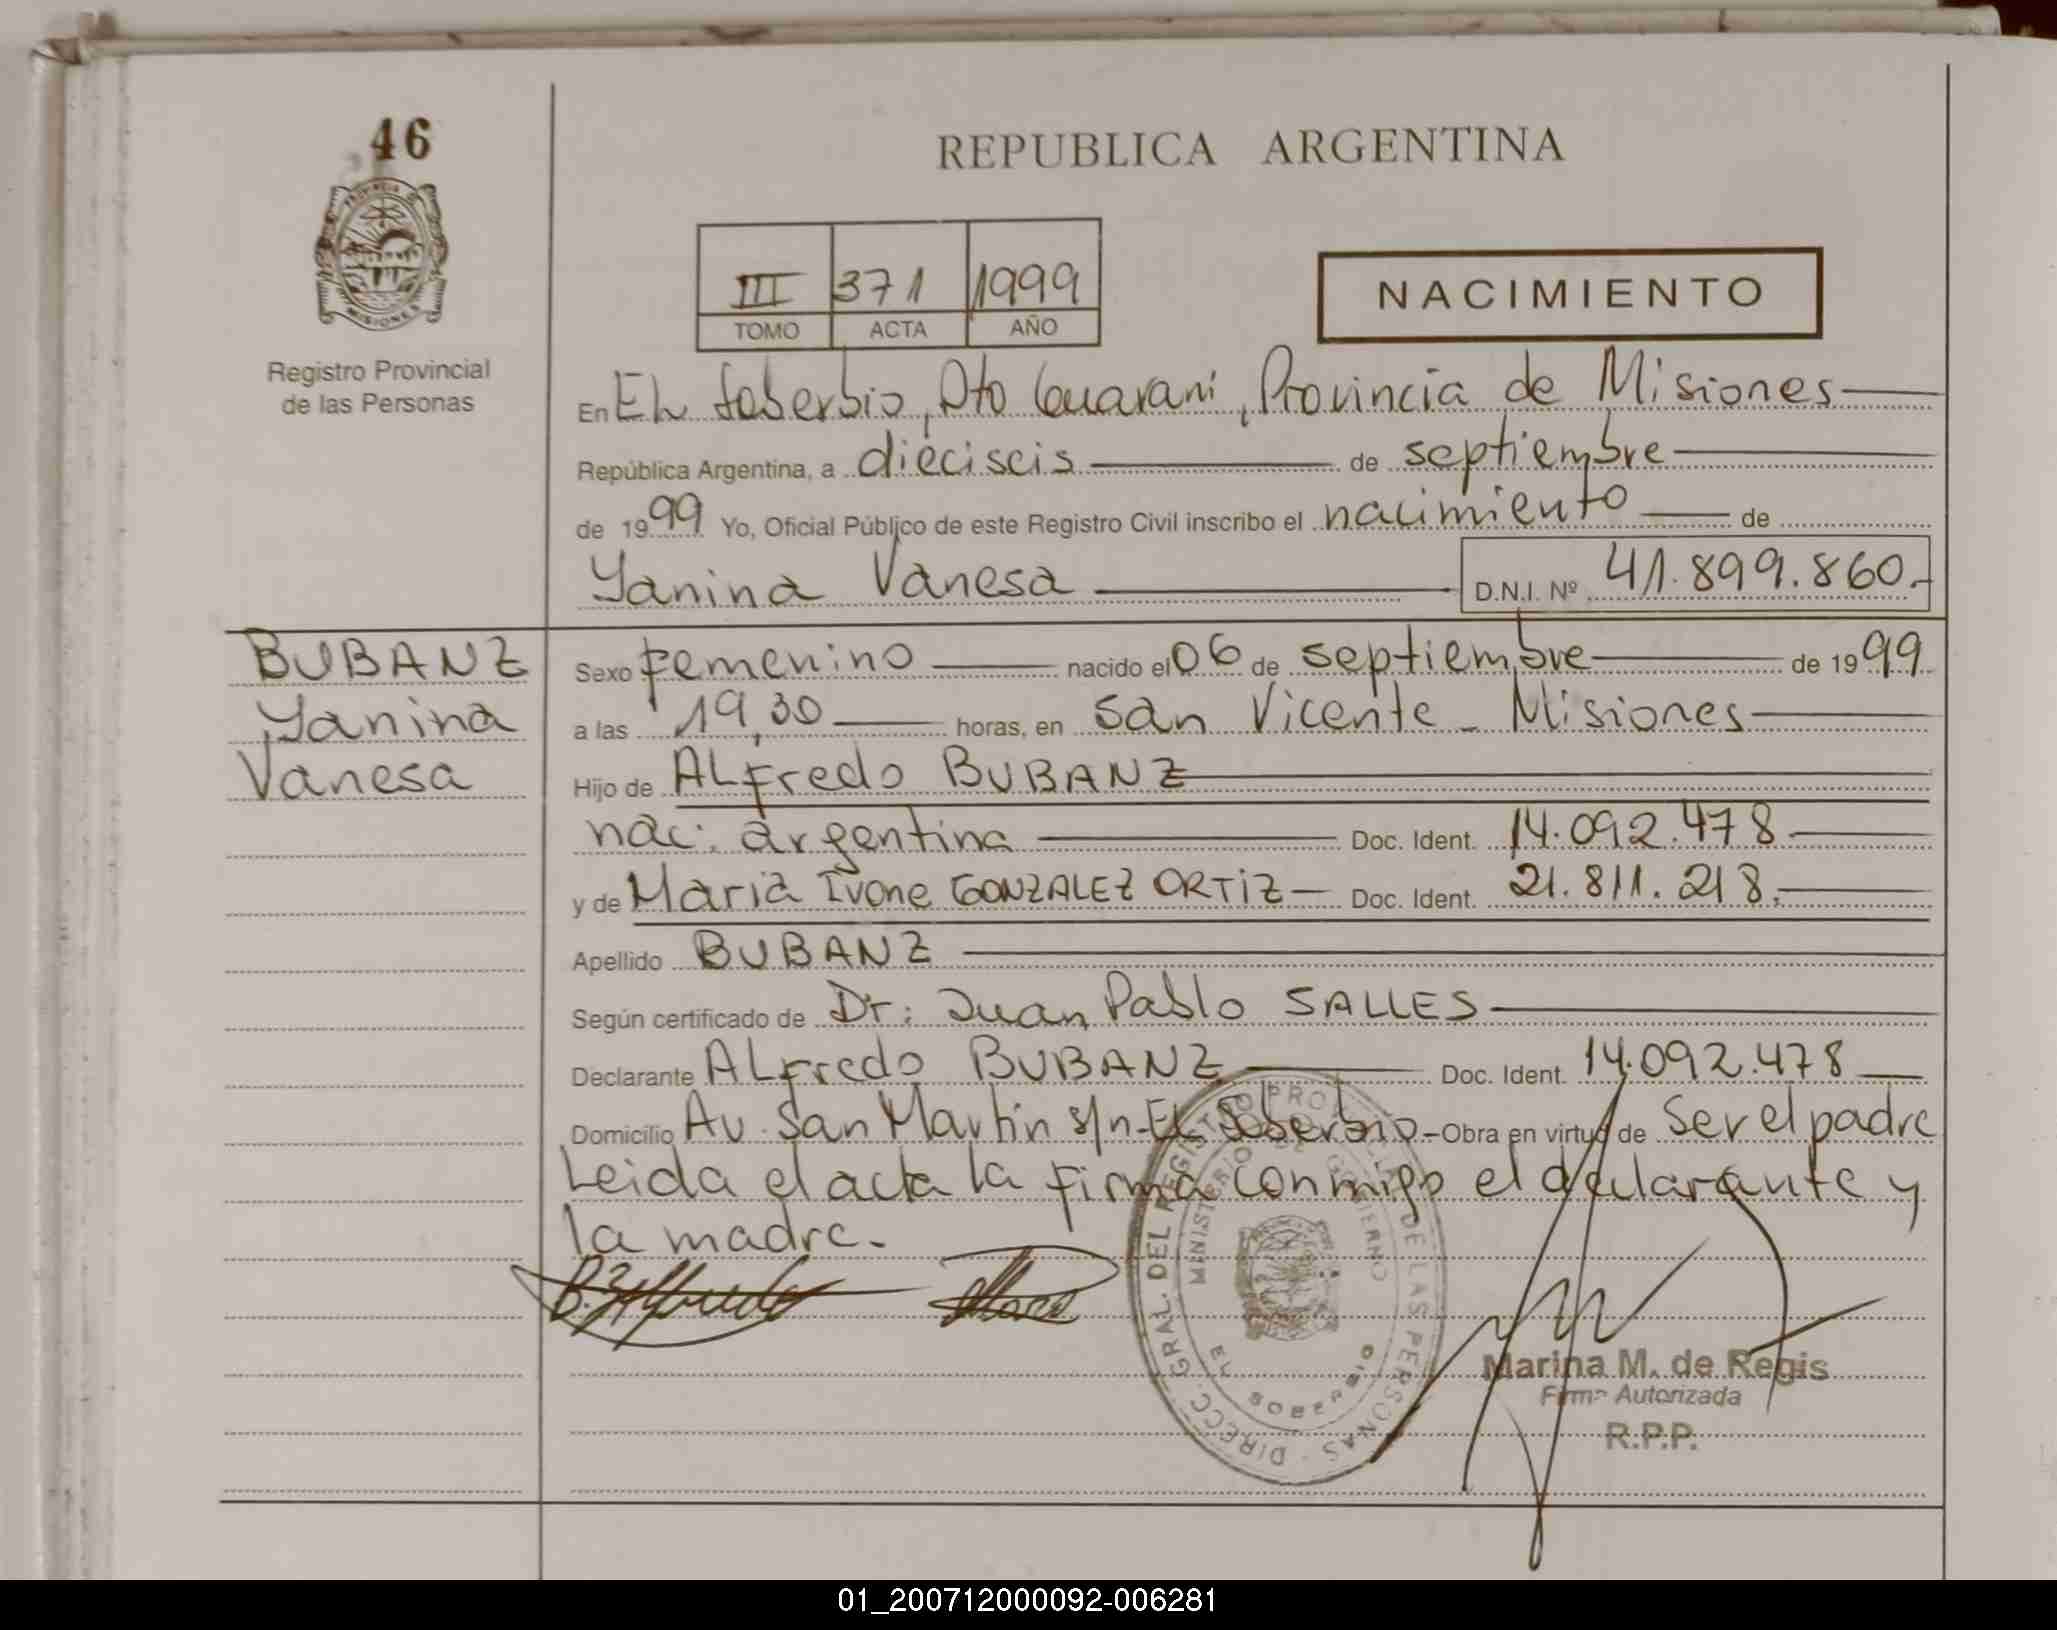 46
REPUBLICA ARGENTINA
PROVINCIA DE
MISIONES
Registro Provincial
de las Personas
III 371 1999
TOMO ACTA AÑO
NACIMIENTO
En EL Soberbio, Dto Guarani, Provincia de Misiones
República Argentina, a dieciseis de septiembre
de 1999 Yo, Oficial Público de este Registro Civil inscribo el nacimiento de
Yanina Vanesa D.N.I. Nº 41.899.860.-
BUBANZ
Yanina
Vanesa
Sexo Femenino nacido el 06 de septiembre de 1999
a las 19,30 horas, en San Vicente - Misiones
Hijo de ALFredo BUBANZ
nac: argentina Doc. Ident. 14.092.478
y de Maria Ivone GONZALEZ ORTIZ Doc. Ident. 21.811.218.
Apellido BUBANZ
Según certificado de Dr: Juan Pablo SALLES
Declarante ALFredo BUBANZ Doc. Ident. 14.092.478
Domicilio Av. San Martin s/n - EL Soberbio - Obra en virtud de Ser el padre
Leida el acta la firma conmigo el declarante y
la madre.
B.Z Alfredo
DIRECC. GRAL. DEL REGISTRO PROVINCIAL DE LAS PERSONAS
MINISTERIO DE GOBIERNO
EL SOBERBIO
Marina M. de Regis
Firma Autorizada
R.P.P.
01_200712000092-006281